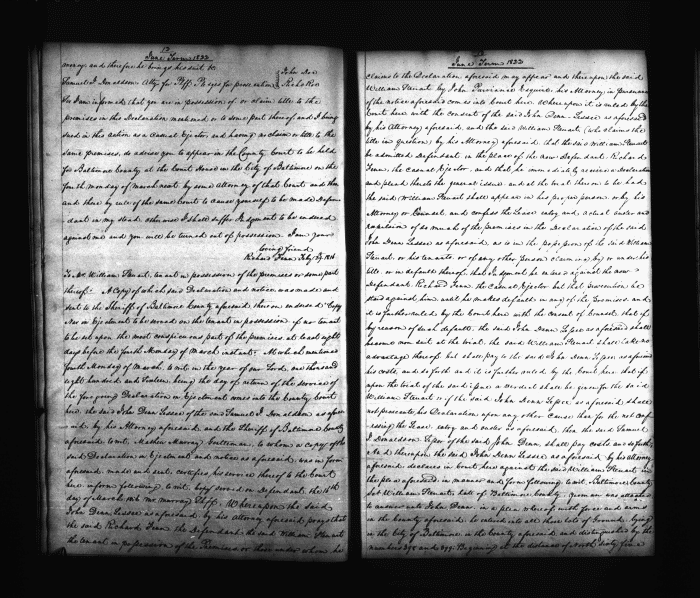 June Term 1833
money and therefore he brings his suit &c
Samuel I Donaldson Atty for Plff. Pledges for prosecution John Doe
Richd Roe
I am informed that you are in possession of or claim title to the
premises in this Declaration mentioned or to some part thereof and I being
sued in this action as a Casual Ejector and having no claim or title to the
same premises, do advise you to appear in the County Court to be held
for Baltimore County at the Court House in the City of Baltimore on the
fourth monday of march next by some Attorney of that Court and then
and there by rule of the same Court to cause yourself to be made Defen
dant in my stead otherwise I shall suffer Judgment to be entered
against me and you will be turned out of possession. I am your
loving friend
Richard Fenn Feby
To Mr William Stewart, tenant in possession of the premises or some part
thereof. A Copy of which said Declaration and notice was made and
sent to the Sheriff of Baltimore County aforesaid thereon endorsed "Copy
Nar in Ejectment to be served on the tenant in possession if no tenant
to be set upon the most conspicuous part of the premises at least eight
days before the fourth Monday of March instant." At which mentioned
fourth Monday of March, to wit in the year of our Lord, one thousand
eight hundred and sixteen being the day of return of the service of
the foregoing Declaration in Ejectment comes into the County Court
here, the said John Denn Lessee of the said Samuel I Donaldson as afore
said, by his Attorney aforesaid, and the Sheriff of Baltimore County
aforesaid, to wit, Mathew Murray Gentleman, to whom a copy of the
said Declaration in Ejectment and notice as aforesaid, was in form
aforesaid made and sent, certifies his service thereof to the Court
here in form following, to wit, "Copy served on Defendant the 11th
day of March 1816 Mr Murray Shff." Whereupon the said
John Denn Lessee as aforesaid by his Attorney aforesaid prays that
the said Richard Fenn the Defendant, the said William Stewart
the tenant in possession of the Premises or those under whom he
June Term 1833
claims to the Declaration aforesaid may appear and thereupon the said
William Stewart by John Purviance Esquire his Attorney in pursuance
of the notice aforesaid comes into Court here. Whereupon it is ruled by the
Court here with the consent of the said John Denn Lessee as aforesaid
by his Attorney aforesaid, and the said William Stewart (who claims the
title in question) by his Attorney aforesaid, that the said William Stewart
be admitted Defendant in the place of the now Defendant Richard
Fenn, the Casual Ejector, and that he immediately receive a Declaration
and plead thereto the general issue and at the trial thereon to be had
the said William Stewart shall appear in his proper person or by his
Attorney or Counsel, and confess the Lease entry and actual ouster and
of so much of the premises in the Declaration of the said
John Denn Lessee as aforesaid, as is in the possession of the said William
Stewart or his tenants or of any other person claiming by or under his
title or in default thereof, that Judgment be entered against the now
Defendant Richard Fenn the Casual Ejector but that Execution be
staid against him until he makes default in any of the Premises and
it is further ruled by the Court here with the consent of Counsel that if
by reason of such default, the said John Denn Lessee as aforesaid shall
become non suit at the trial, the said William Stewart shall take no
advantage thereof but shall pay to the said John Denn Lessee as aforesaid
his costs, and so forth and it is further ruled by the Court here that if
upon the trial of the said issue a verdict shall be given for the said
William Stewart or if the said John Denn Lessee as aforesaid shall
not prosecute his Declaration upon any other cause than for the not conf
essing the Lease entry and ouster as aforesaid, then the said Samuel
I Donaldson Lessor of the said John Denn, shall pay costs and so forth
And thereupon the said John Denn Lessee as aforesaid, by his Attorney
aforesaid declares in Court here against the said William Stewart in
the plea aforesaid in manner and form following, to wit, Baltimore County
to wit, William Stewart, late of Baltimore County, yeoman was attached
to answer unto John Denn, in a plea wherefore with force and arms
in the County aforesaid, he entered into all those lots of Ground, lying
in the City of Baltimore in the County aforesaid and distinguished by the
numbers 398 and 399. Beginning at the distance of North sixty five